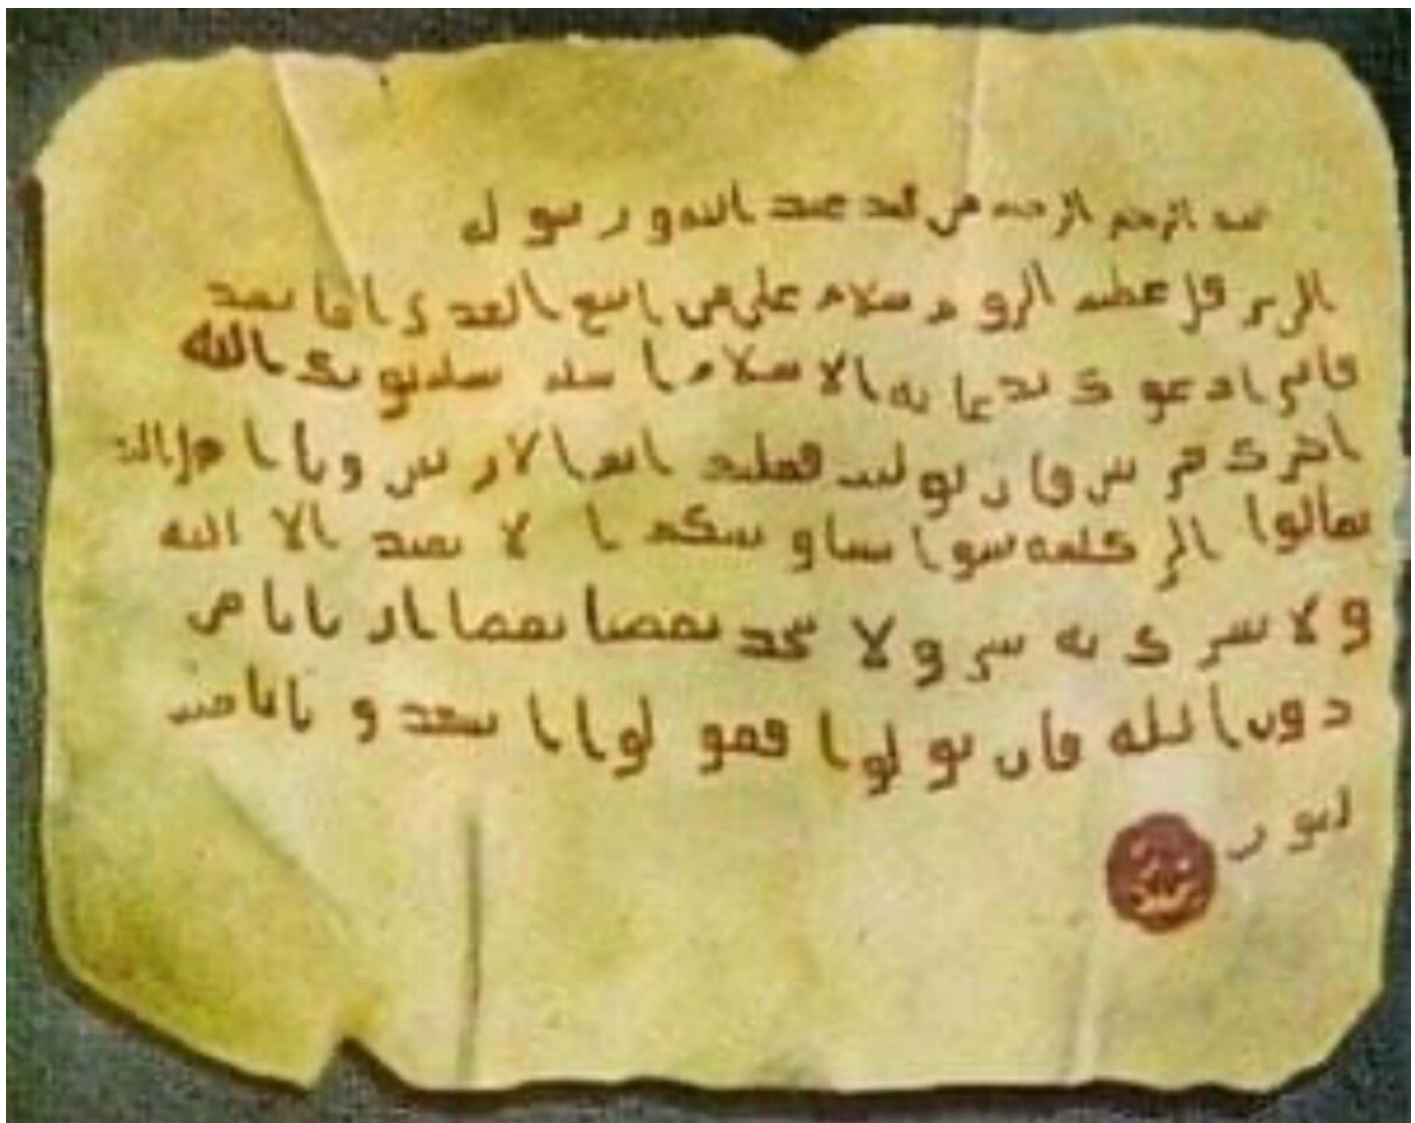 الله الرحمن الرحىم من محمد عبد الله و رسول
الى هر قل عظيم الرو م سلام على من اتبع الهدى اما بعد
فانى اد عو ك بد عا ىه الا سلام ا سلم تسلم يو تك الله
اجر ك مر تين فا ن تو ليت فعليك اثم الا ر يس و يا ا هل
تعالوا الى كلمه سوا بيننا و بينكم ا لا نعبد الا الله
و لا نشر ك به شى و لا يتخذ بعضنا بعضا ار بابا من
دون الله فان تو لوا فقو لوا ا شهد و ا بانا